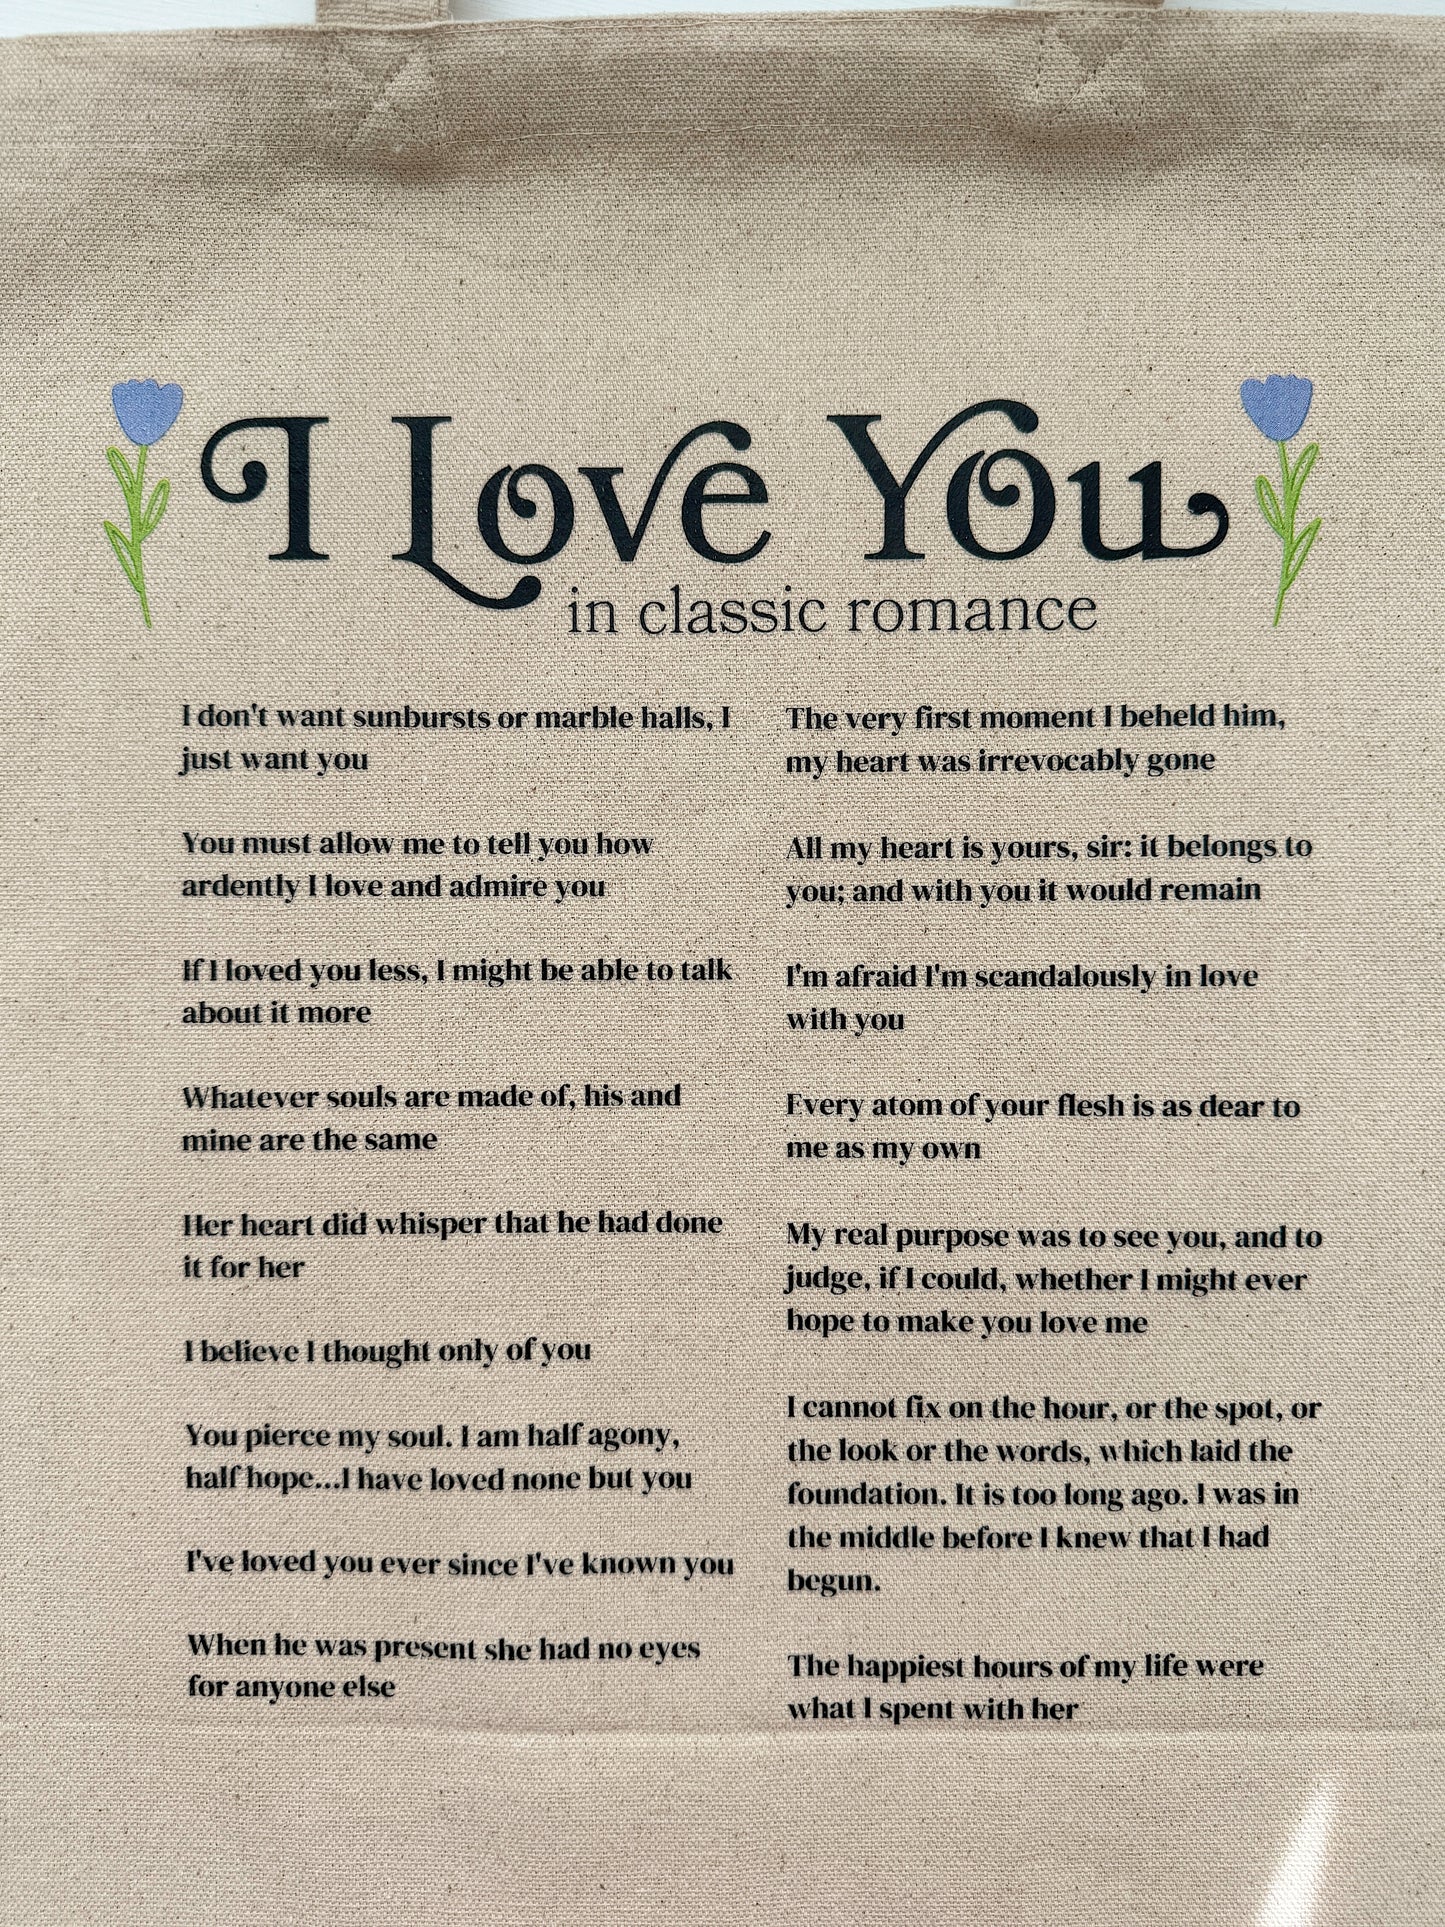 I Love You
in classic romance
I don't want sunbursts or marble halls, I
just want you
You must allow me to tell you how
ardently I love and admire you
If I loved you less, I might be able to talk
about it more
Whatever souls are made of, his and
mine are the same
Her heart did whisper that he had done
it for her
I believe I thought only of you
You pierce my soul. I am half agony,
half hope...I have loved none but you
I've loved you ever since I've known you
When he was present she had no eyes
for anyone else
The very first moment I beheld him,
my heart was irrevocably gone
All my heart is yours, sir: it belongs to
you; and with you it would remain
I'm afraid I'm scandalously in love
with you
Every atom of your flesh is as dear to
me as my own
My real purpose was to see you, and to
judge, if I could, whether I might ever
hope to make you love me
I cannot fix on the hour, or the spot, or
the look or the words, which laid the
foundation. It is too long ago. I was in
the middle before I knew that I had
begun.
The happiest hours of my life were
what I spent with her